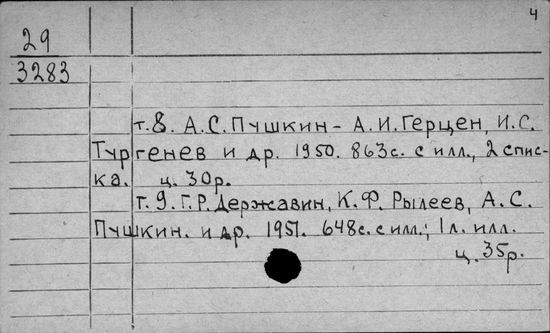 4
29
3283
т.8. А.С.Пушкин - А.И.Герцен, И.С.
Тургенев и др. 1950. 863с. с илл., 2 спис-
ка. ц. 30р.
т.9. Г.Р.Державин, К.Ф.Рылеев, А.С.
Пушкин. и др. 1951. 648с. с илл.; 1л. илл.
ц. 35р.